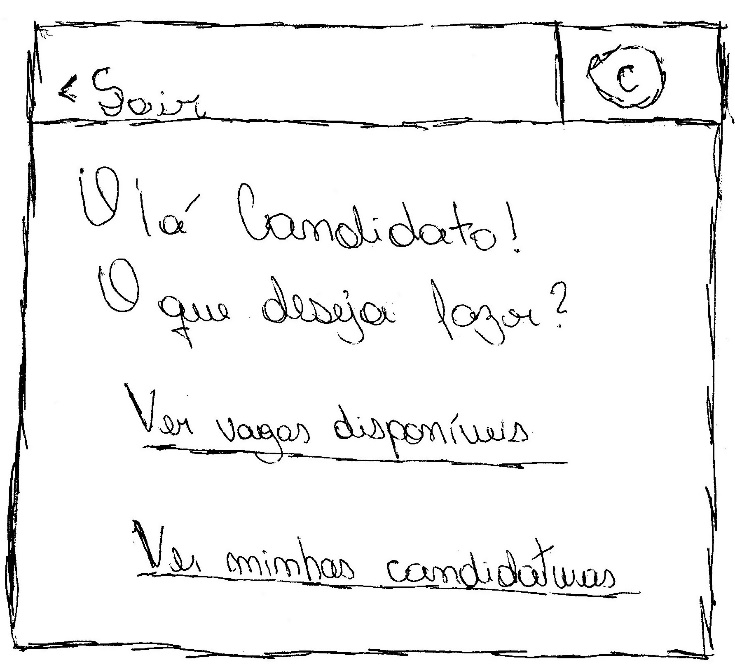 < Sair
C
Olá Candidato!
O que deseja fazer?
Ver vagas disponíveis
Ver minhas candidaturas